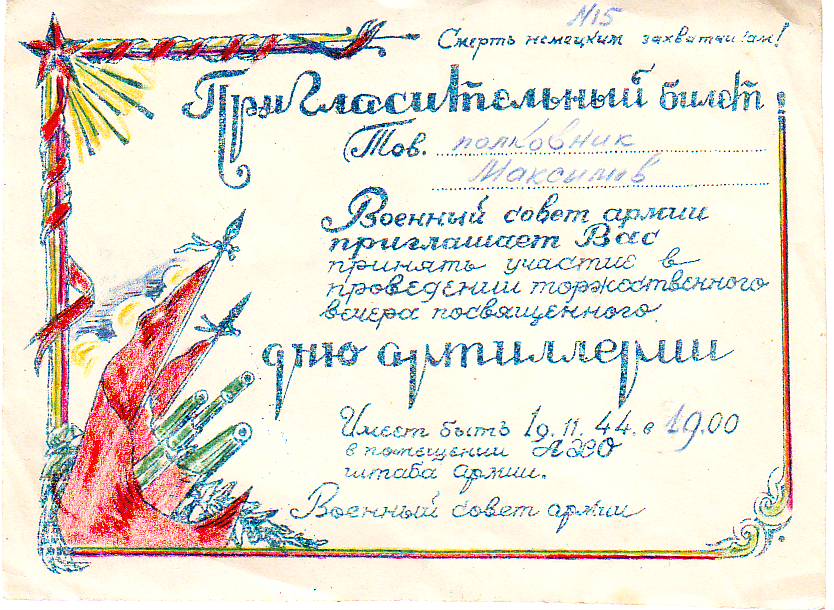 №15
Смерть немецким захватчикам!
Пригласительный билет
Тов. полковник
Максимов
Военный совет армии
приглашает Вас
принять участие в
проведении торжественного
вечера посвященного
дню артиллерии
Имеет быть 19.11.44. в 19.00
в помещении
штаба армии.
Военный совет армии